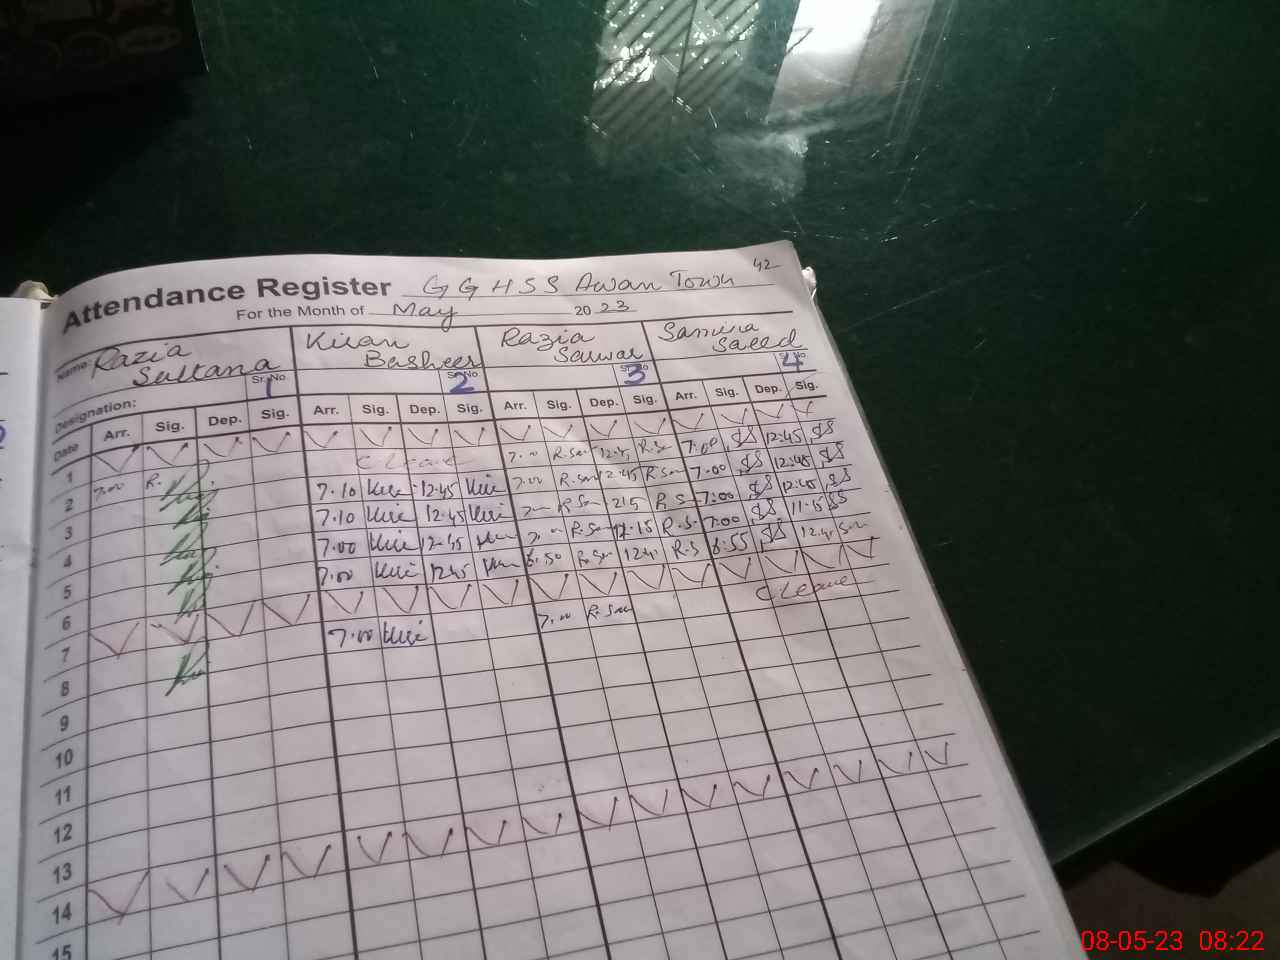 42
Attendance Register GGHSS Awan Town
For the Month of May 2023
Name: Razia Sultana Kiran Basheer Razia Sarwar Samina Saeed
Sr. No. 1 Sr. No. 2 Sr. No. 3 Sr. No. 4
Designation:
Date Arr. Sig. Dep. Sig. Arr. Sig. Dep. Sig. Arr. Sig. Dep. Sig. Arr. Sig. Dep. Sig.
1
2 7.00 R. C Leave 7.00 R.Sar 12.45 R.S 7.00 SS 12:45 SS
3 7.10 12.45 7.00 R.Sar 12.45 R.Sar 7.00 SS 12:45 SS
4 7.10 12.45 R.Sar R.S 7:00 SS 12:45 SS
5 7.00 12.45 R.Sar 12.15 R.S. 7:00 SS 11.15 SS
6 7.00 12.45 6.50 R.Sar R.S 6:55 SS
7
8 7.00 7.00 R.Sar C Leave
9
10
11
12
13
14
15
08-05-23 08:22